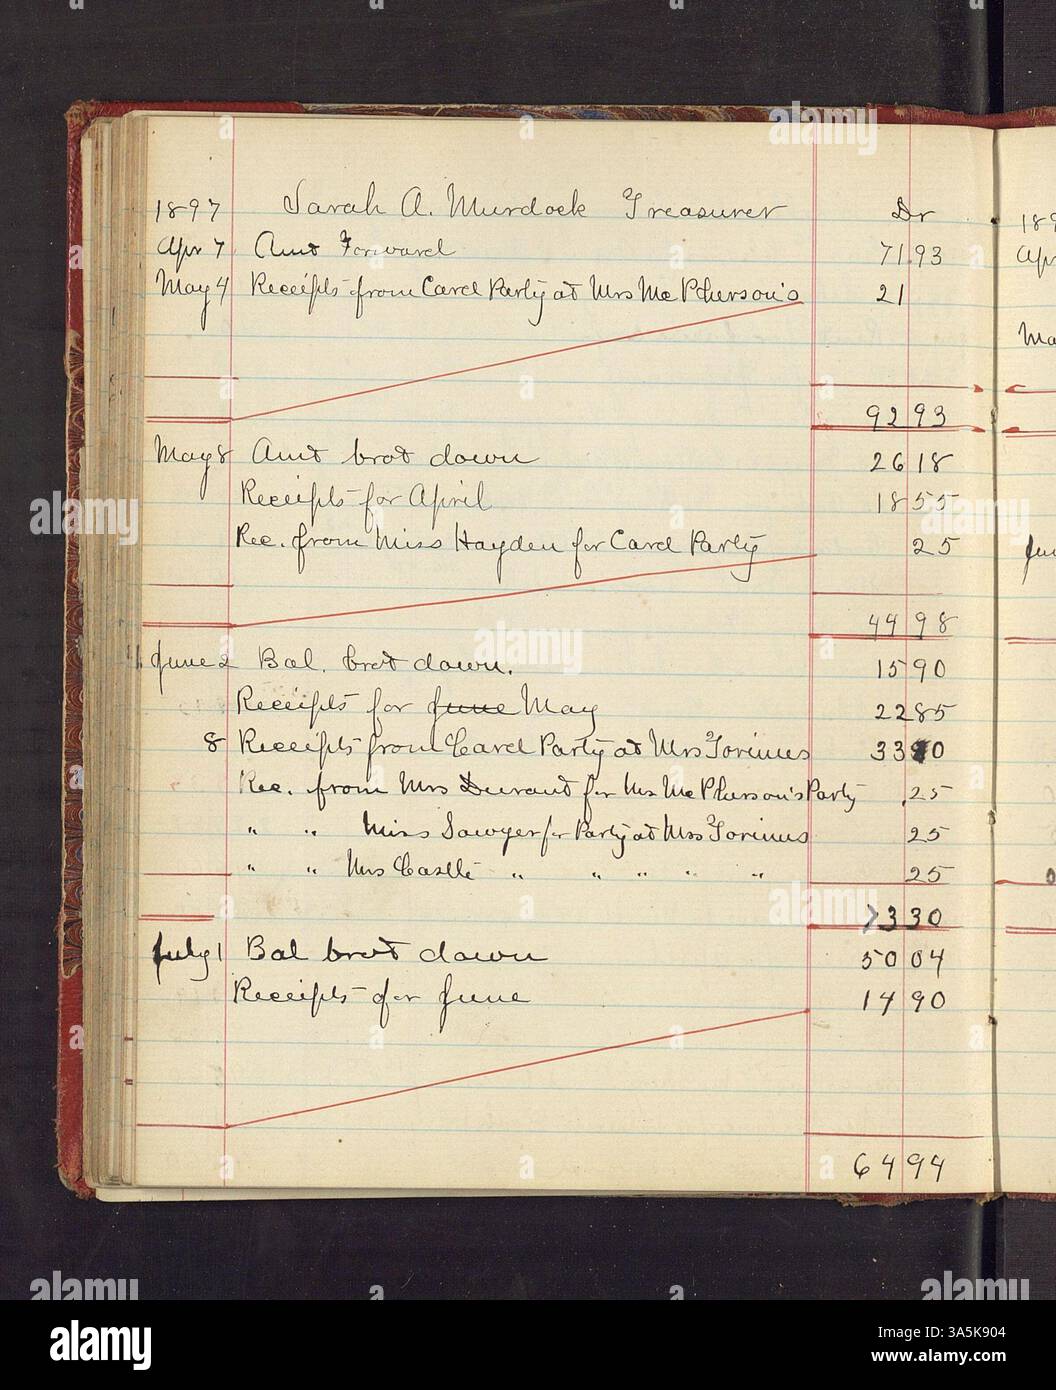 1897 Sarah A. Murdock Treasurer Dr
Apr 7 Amt Forward 71.93
May 4 Receipts from Card Party at Mrs McPherson's 21
92 93
May 8 Amt brot down 26 18
Receipts for April 18 55
Rec. from Miss Hayden for Card Party 25
44 98
June 2 Bal. brot down. 15 90
Receipts for June May 22 85
8 Receipts from Card Party at Mrs Torinus
Rec. from Mrs Durand for Mrs McPherson's Party .25
" " Miss Sawyer for Party at Mrs Torinus 25
" " Mrs Castle " " " " " 25
73 30
July 1 Bal brot down 50 04
Receipts for June 14 90
64 94
189
Apr
Ma
Jun
alamy
alamy
Image ID: 3A5K904
www.alamy.com